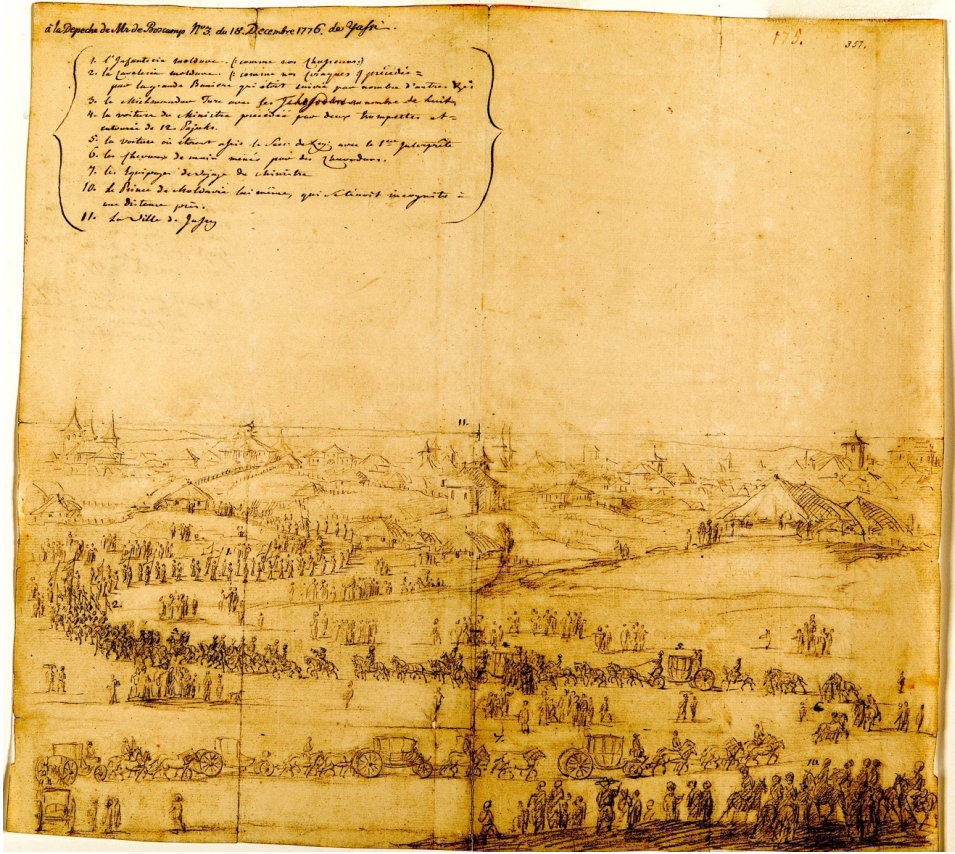 à la Depeche de Mr de Boscamp Nº 3. du 18. Decembre 1776. de Yassi.
175.
357.
1. l'Infanterie moldave. (: comme nos
2. la Cavalerie moldave (: comme nos précédée =
par la grande Baniere qui étoit suivie par nombre d'autres
3. le Michmandar Turc avec ses au nombre de huit
4. la voiture du Ministre precédée par deux trompettes et =
entourée de 12
5. la voiture où étoient assis le Secr: de avec le 1er Interprète
6. les chevaux de main menés par des
7. les Equipages du Ministre
10. le Prince de Moldavie lui même, qui se tenoit incognito à =
une distance près.
11. La Ville de Jassy
11.
1.
2.
6
7
10.